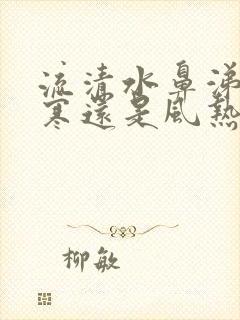 流清水鼻涕
寒還是風熱
柳敏